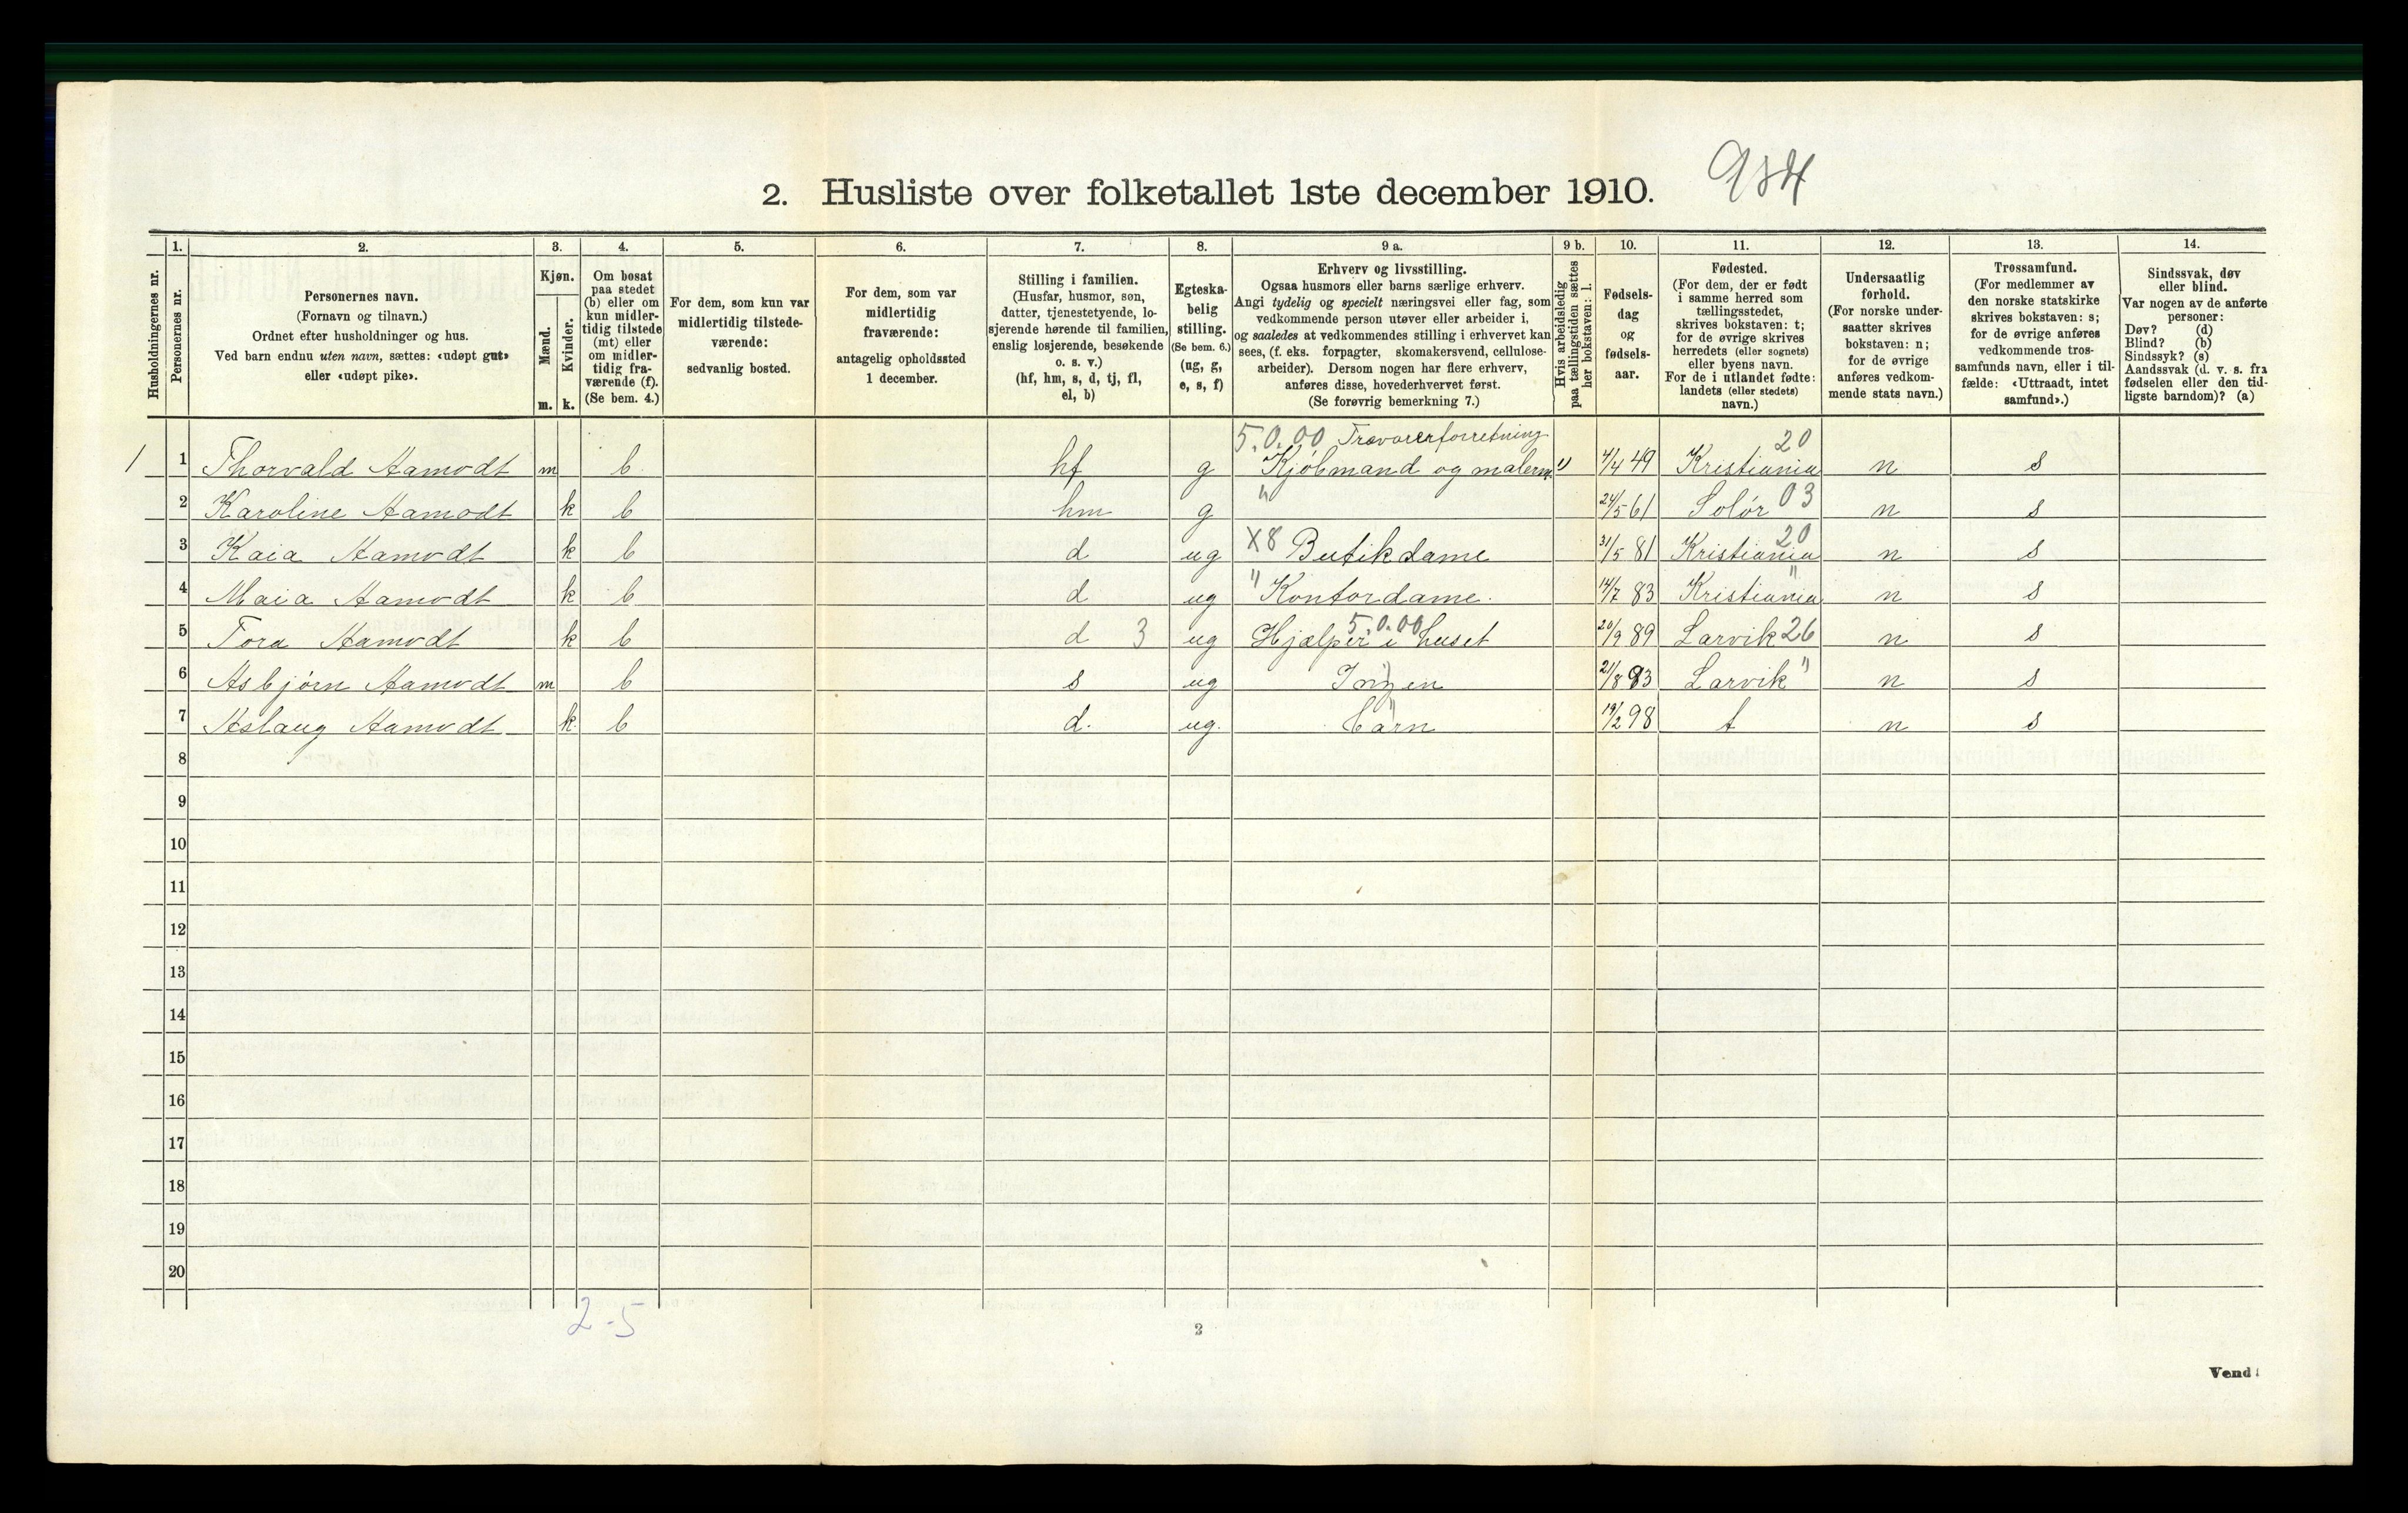 2. Husliste over folketallet 1ste december 1910. 984
Husholdningernes nr.
1.
Personernes nr.
2.
Personernes navn.
(Fornavn og tilnavn.)
Ordnet efter husholdninger og hus.
Ved barn endnu uten navn, sættes: «udøpt gut»
eller «udøpt pike».
3.
Kjøn.
Mænd.
Kvinder.
m. k.
4.
Om bosat
paa stedet
(b) eller om
kun midler-
tidig tilstede
(mt) eller
om midler-
tidig fra-
værende (f).
(Se bem. 4.)
5.
For dem, som kun var
midlertidig tilstede-
værende:
sedvanlig bosted.
6.
For dem, som var
midlertidig
fraværende:
antagelig opholdssted
1 december.
7.
Stilling i familien.
(Husfar, husmor, søn,
datter, tjenestetyende, lo-
sjerende hørende til familien,
enslig losjerende, besøkende
o. s. v.)
(hf, hm, s, d, tj, fl,
el, b)
8.
Egteska-
belig
stilling.
(Se bem. 6.)
(ug, g,
e, s, f)
9 a.
Erhverv og livsstilling.
Ogsaa husmors eller barns særlige erhverv.
Angi tydelig og specielt næringsvei eller fag, som
vedkommende person utøver eller arbeider i,
og saaledes at vedkommendes stilling i erhvervet kan
sees, (f. eks. forpagter, skomakersvend, cellulose-
arbeider). Dersom nogen har flere erhverv,
anføres disse, hovederhvervet først.
(Se forøvrig bemerkning 7.)
9 b.
Hvis arbeidsledig
paa tællingstiden sættes
her bokstaven: l.
10.
Fødsels-
dag
og
fødsels-
aar.
11.
Fødested.
(For dem, der er født
i samme herred som
tællingsstedet,
skrives bokstaven: t;
for de øvrige skrives
herredets (eller sognets)
eller byens navn.
For de i utlandet fødte:
landets (eller stedets)
navn.)
12.
Undersaatlig
forhold.
(For norske under-
saatter skrives
bokstaven: n;
for de øvrige
anføres vedkom-
mende stats navn.)
13.
Trossamfund.
(For medlemmer av
den norske statskirke
skrives bokstaven: s;
for de øvrige anføres
vedkommende tros-
samfunds navn, eller i til-
fælde: «Uttraadt, intet
samfund».)
14.
Sindssvak, døv
eller blind.
Var nogen av de anførte
personer:
Døv? (d)
Blind? (b)
Sindssyk? (s)
Aandssvak (d. v. s. fra
fødselen eller den tid-
ligste barndom)? (a)
5.0.00 Trævareforretning 20
1 1 Thorvald Aamodt m b hf g Kjöbmand og malerm. 4/4 49 Kristiania n s
2 Karoline Aamodt k b hm g " 24/5 61 Solör 03 n s
3 Kaia Aamodt k b d ug X8 Butikdame 31/5 81 Kristiania 20 n s
4 Maia Aamodt k b d ug " Kontordame. 14/7 83 Kristiania " n s
5 Tora Aamodt k b d 3 ug Hjælper i huset 5.0.00 20/9 89 Larvik 26 n s
6 Asbjörn Aamodt m b s ug Ingen 21/8 93 Larvik " n s
7 Aslaug Aamodt k. b d. ug. barn 19/2 98 t n s
8
9
10
11
12
13
14
15
16
17
18
19
20
2-5
3
Vend!